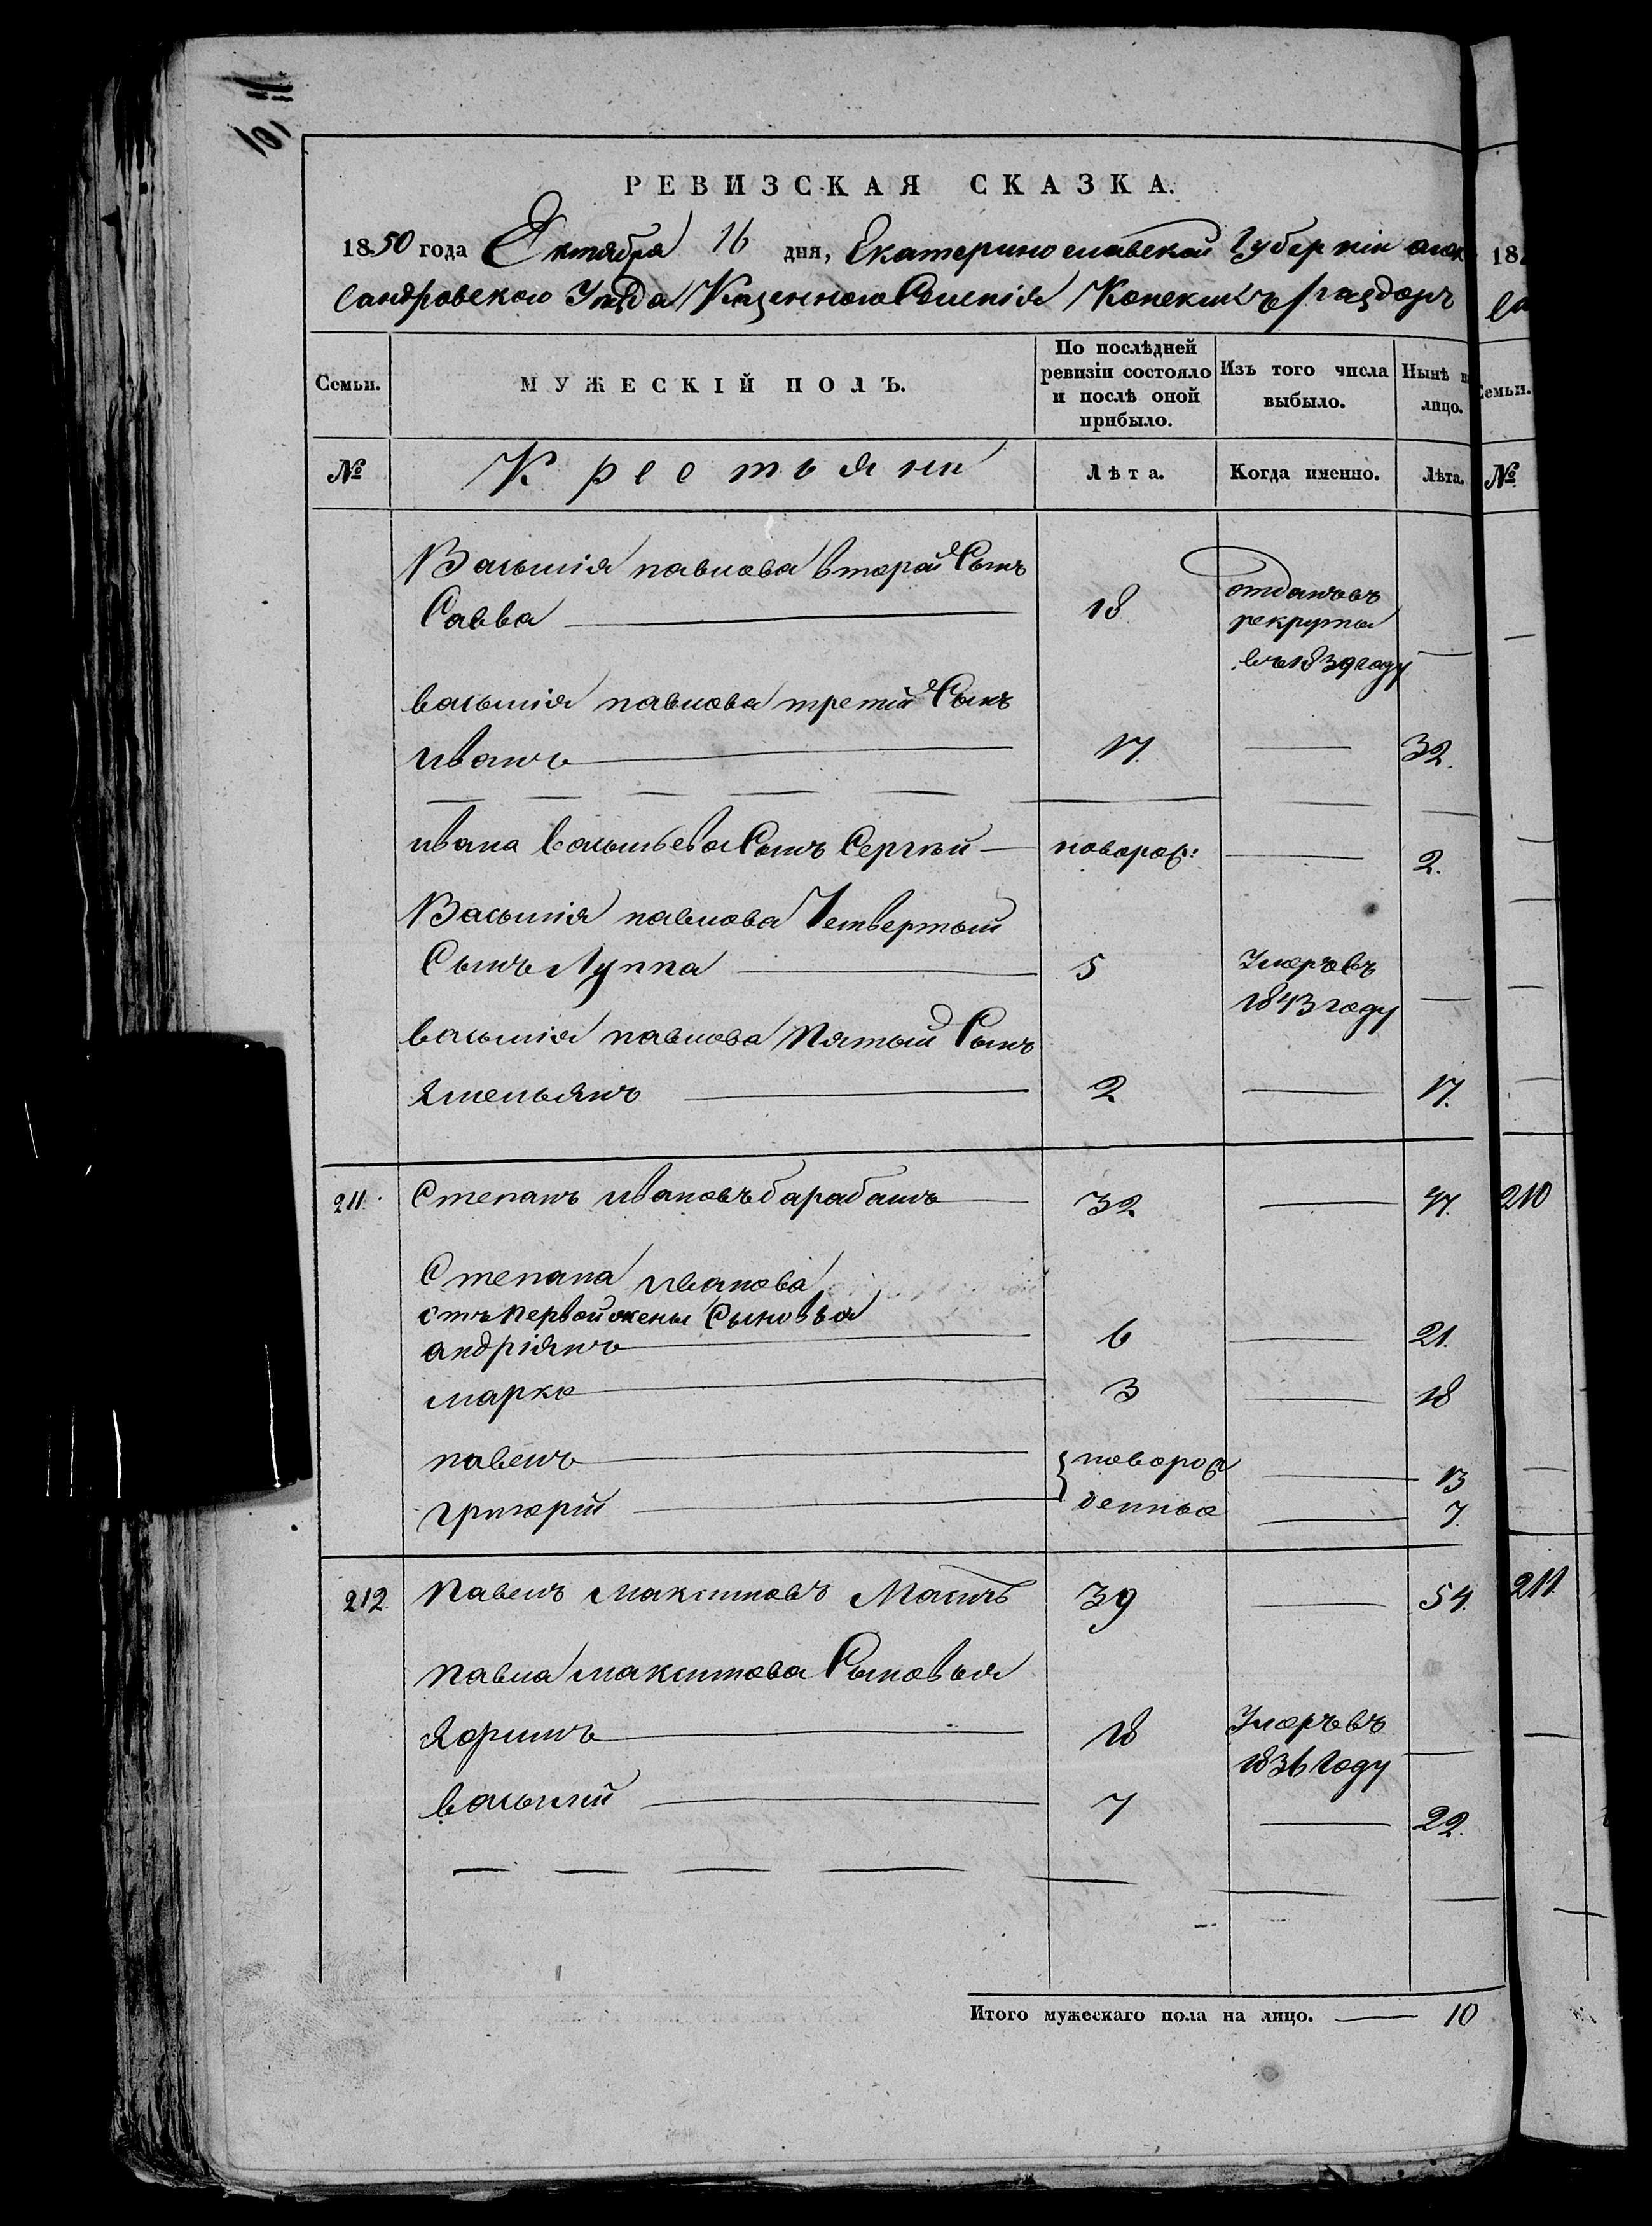 101
РЕВИЗСКАЯ СКАЗКА.
1850 года Октября 16 дня, Екатеринославской Губерніи алек
сандровскаго Уезда Казенного Селенія Конскихъ раздоръ
Семьи.
МУЖЕСКІЙ ПОЛЪ.
По послѣдней ревизіи состояло и послѣ оной прибыло.
Изъ того числа выбыло.
Нынѣ на лицо.
№
Крестьяни
Лѣта.
Когда именно.
Лѣта.
Василия павлова второй Сынъ
Савва 18 отданъ въ
рекруты
въ 1839 году
василия павлова третий Сынъ
иванъ 17. 32.
ивана васильева Сынъ Сергей новорож: 2.
Василия павлова Четвертый
Сынъ Луппа 5 Умеръ въ
1843 году
василия павлова Пятый Сынъ
Ямельянъ 2 17.
211. Степанъ ивановъ барабашъ 32 47.
Степана иванова
отъ первой жены Сыновья
андріянъ 6 21.
марко 3 18
павелъ новорож 13
григорій денные 7.
212 Павелъ Максимовъ 39 54.
Павла максимова Сыновья
18 Умеръ въ
1836 году
василий 7 22.
Итого мужескаго пола на лицо. 10
18
са
Семьи.
№
210
211.